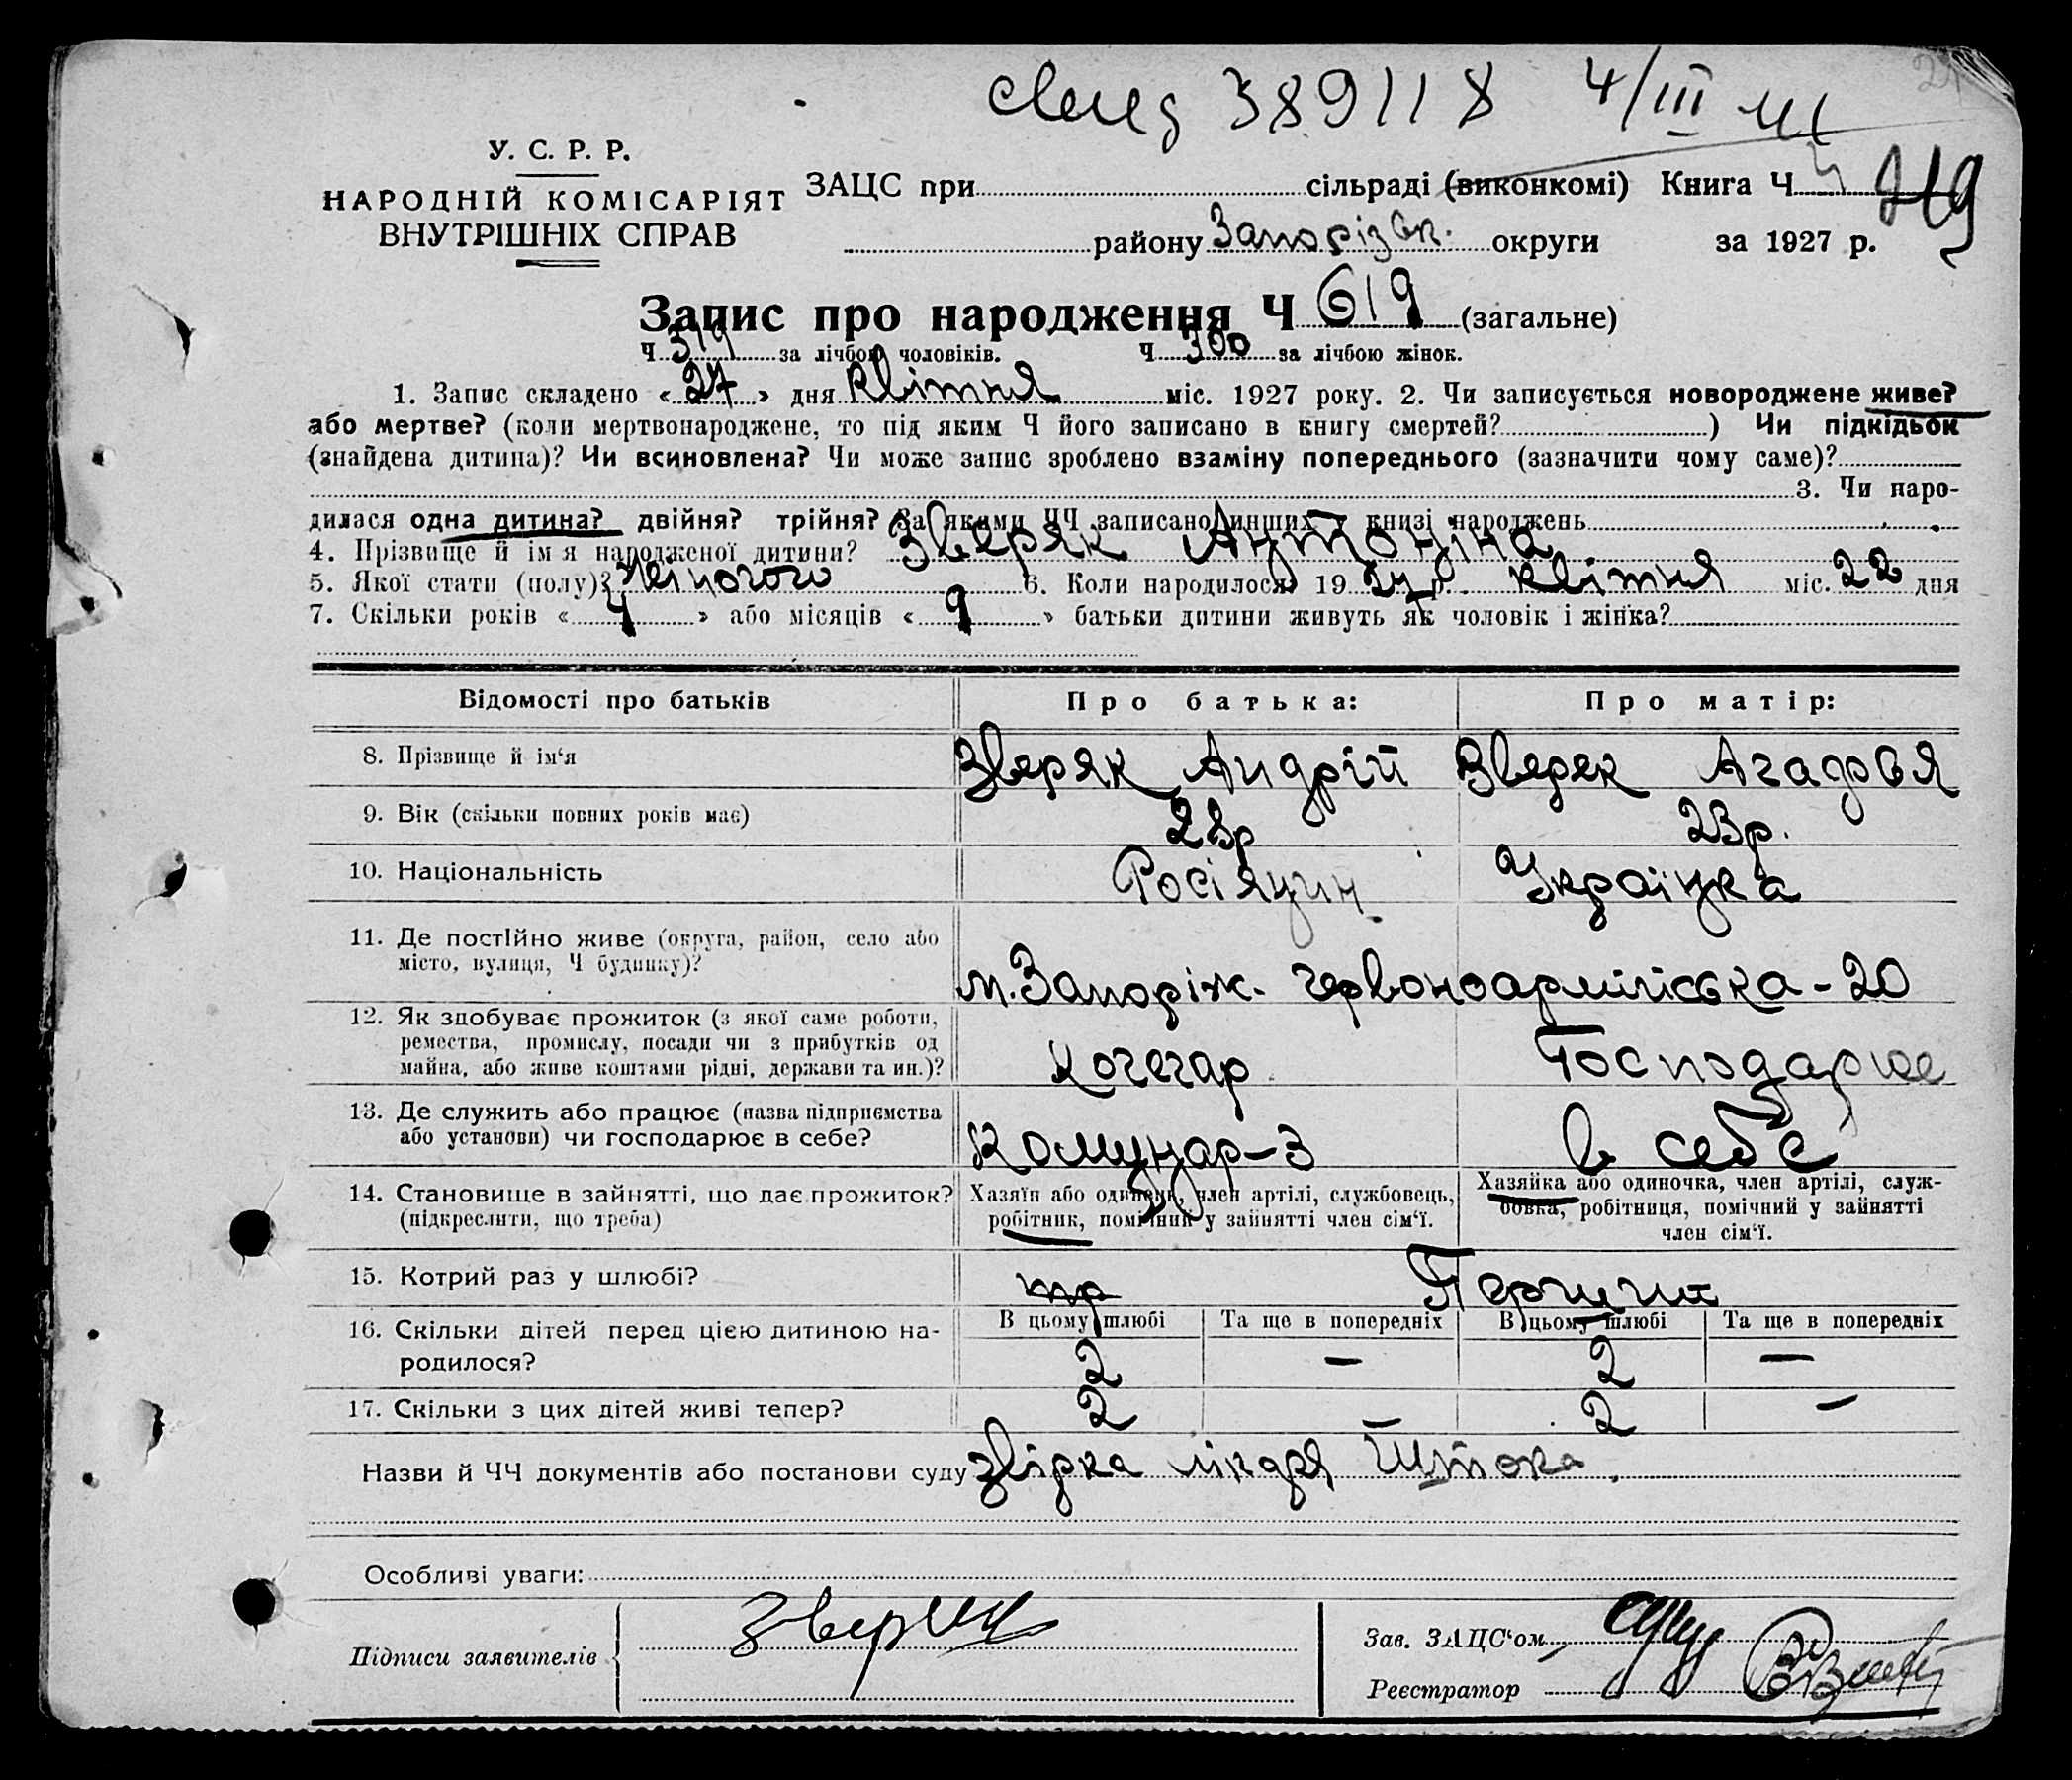 389118 4/III
У. С. Р. Р.
НАРОДНІЙ КОМІСАРІЯТ
ВНУТРІШНІХ СПРАВ
ЗАЦС при сільраді (виконкомі) Книга Ч 219
району Запорізьк. округи за 1927 р.
Запис про народження Ч 619 (загальне)
Ч 319 за лічбою чоловіків. Ч 300 за лічбою жінок.
1. Запис складено « 27 » дня квітня міс. 1927 року. 2. Чи записується новороджене живе?
або мертве? (коли мертвонароджене, то під яким Ч його записано в книгу смертей? ) Чи підкідьок
(знайдена дитина)? Чи всиновлена? Чи може запис зроблено взаміну попереднього (зазначити чому саме)?
3. Чи наро-
дилася одна дитина? двійня? трійня? За якими ЧЧ записано инших у книзі народжень
4. Прізвище й ім'я народженої дитини? Зверяк Антоніна
5. Якої стати (полу)? жіночого 6. Коли народилося 19 27 р. квітня міс. 22 дня
7. Скільки років « 4 » або місяців « 9 » батьки дитини живуть як чоловік і жінка?
Відомості про батьків Про батька: Про матір:
8. Прізвище й ім'я Зверяк Андрій Зверек Агафья
9. Вік (скільки повних років має) 28р 23р.
10. Національність Росіянин Українка
11. Де постійно живе (округа, район, село або
місто, вулиця, Ч будинку)? м. Запоріж. Червоноармійська - 20
12. Як здобуває прожиток (з якої саме роботи,
ремества, промислу, посади чи з прибутків од
майна, або живе коштами рідні, держави та ин.)? Кочегар Господарює
13. Де служить або працює (назва підприємства
або установи) чи господарює в себе? Комунар-3 в себе
14. Становище в зайнятті, що дає прожиток?
(підкреслити, що треба)
Хазяїн або одинець, член артілі, службовець,
робітник, помічний у зайнятті член сім'ї.
Хазяйка або одиночка, член артілі, служ-
бовка, робітниця, помічний у зайнятті
член сім'ї.
15. Котрий раз у шлюбі? Перший
16. Скільки дітей перед цією дитиною на-
родилося?
В цьому шлюбі Та ще в попередніх В цьому шлюбі Та ще в попередніх
2 — 2 —
17. Скільки з цих дітей живі тепер? 2 — 2 —
Назви й ЧЧ документів або постанови суду звірка лікаря Штока.
Особливі уваги:
Підписи заявителів
Зав. ЗАЦС'ом
Реєстратор